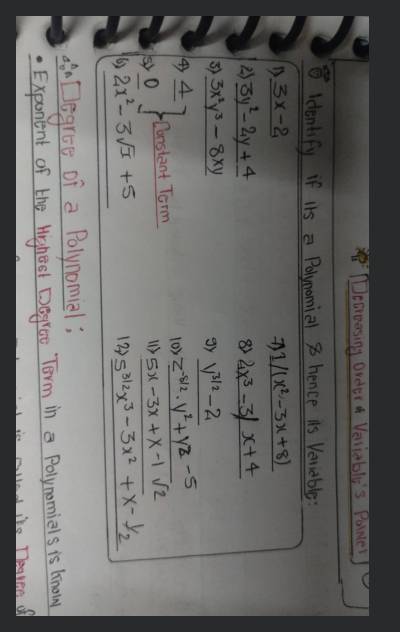 Decreasing Order & Variable's Power
Identify if its a Polynomial & hence its Variable:
1) 3x - 2
2) 3y² - 2y + 4
3) 3x²y³ - 8xy
4) 4
5) 0
Constant Term
6) 2x² - 3√x + 5
7) 1/(x² - 3x + 8)
8) 2x³ - 3/x + 4
9) y^3/2 - 2
10) z^-5/2 · y² + y² - 5
11) 5x - 3x + x - 1 √2
12) 5^3/2 x³ - 3x² + x - 1/2
Degree of a Polynomial;
• Exponent of the Highest Degree Term in a Polynomials is know
is called its Degree of